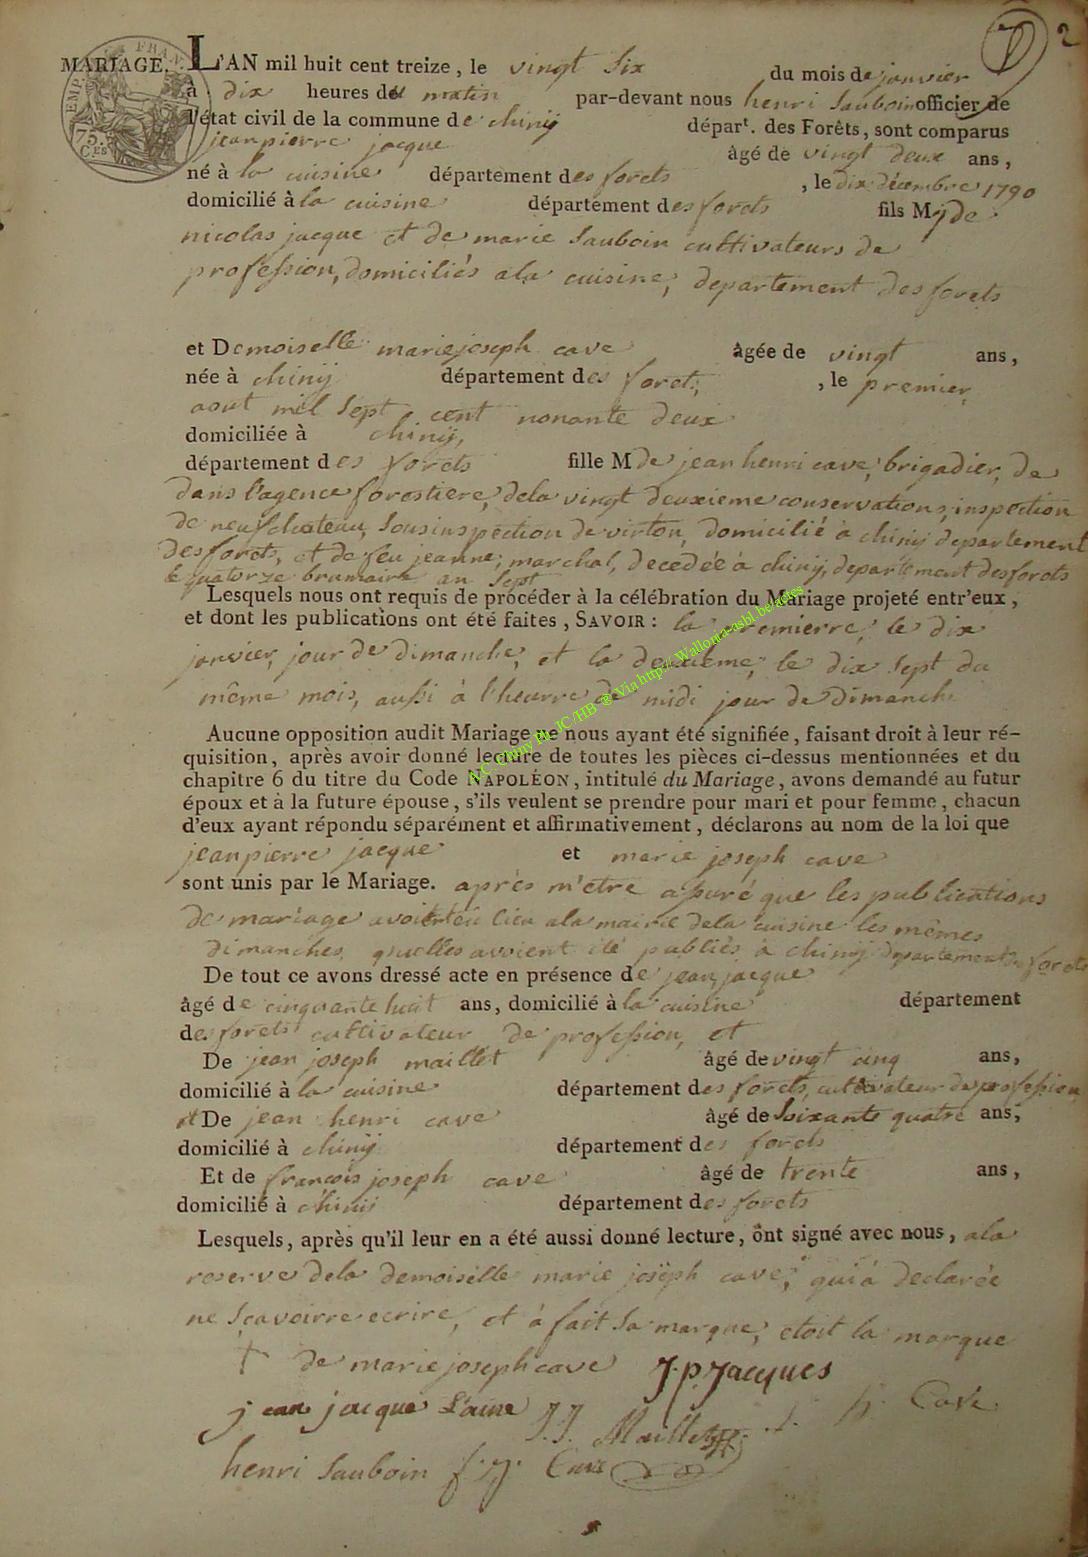 MARIAGE. L'AN mil huit cent treize, le vingt six du mois de janvier
à dix heures du matin par-devant nous henri Sauboin officier de
l'état civil de la commune de chinij départ. des Forêts, sont comparus
jeanpierre jacque âgé de vingt deux ans,
né à la cuisine département des forets, le dix décembre 1790
domicilié à la cuisine département des forets fils Mj de
nicolas jacque et de marie Sauboin cultivateurs de
profession, domiciliés ala cuisine, departement des forets
et Demoiselle mariejoseph cave âgée de vingt ans,
née à chinij département des forets, le premier
aout mil Sept cent nonante deux
domiciliée à chinij,
département des forets fille M de jean henri cave, brigadier, de
dans l'agence forostiere, dela vingt deuxieme conservations, inspection
de neufchateau, Sousinspection de virton, domicilié à chinij departement
des forets, et de feu jeanne, marchal, decedée à chinij, departement des forets
le quatorze brumaire an Sept
Lesquels nous ont requis de procéder à la célébration du Mariage projeté entr'eux,
et dont les publications ont été faites, SAVOIR : la premierre, le dix
janvier, jour de dimanche, et la deuxieme, le dix Sept du
même mois, aussi à l'heurre de midi jour de Dimanch
Aucune opposition audit Mariage ne nous ayant été signifiée, faisant droit à leur ré-
quisition, après avoir donné lecture de toutes les pièces ci-dessus mentionnées et du
chapitre 6 du titre du Code NAPOLÉON, intitulé du Mariage, avons demandé au futur
époux et à la future épouse, s'ils veulent se prendre pour mari et pour femme, chacun
d'eux ayant répondu séparément et affirmativement, déclarons au nom de la loi que
jeanpierre jacque et marie joseph cave
sont unis par le Mariage. après m'etre assuré que les publications
de mariage avoient eu lieu ala mairie dela cuisine les mêmes
dimanches, quelles avoient été publiés à chinij departement des forets
De tout ce avons dressé acte en présence de jean jacque
âgé de cinquante huit ans, domicilié à la cuisine département
des forets cultivateur de profession, et
De jean joseph maillet âgé de vingt cinq ans,
domicilié à la cuisine département des forets, cultivateur de profession
et De jean henri cave âgé de Soixante quatre ans,
domicilié à chinij département des forets
Et de francois joseph cave âgé de trente ans,
domicilié à chinij département des forets
Lesquels, après qu'il leur en a été aussi donné lecture, ont signé avec nous, ala
reserve dela demoiselle marie joseph cave, qui à declarée
ne Scavoirre ecrire, et à fait Sa marque, etoit la marque
de marie joseph cave J. p. Jacques
jean jacque L'ainé J. J. Maillet j. h. Cave
henri Sauboin f. j. Cave
A.C. Chiny Ph. JC/HB @ Via http://Wallonia-asbl.be/actes
75.
C.ES
2